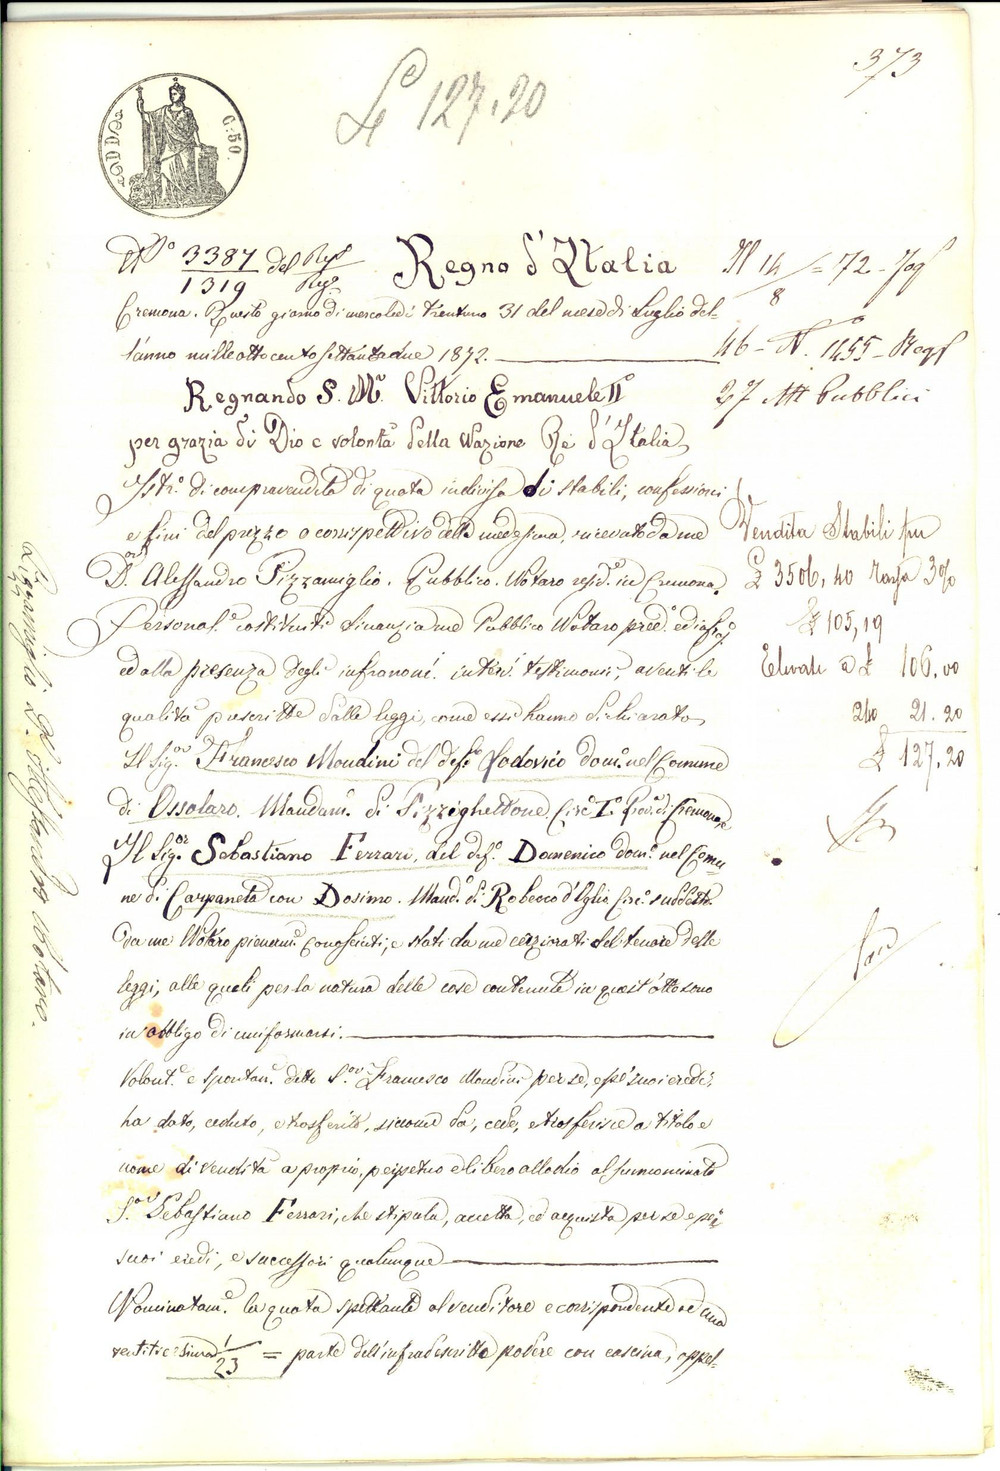 373
£ 127.20
C. 50.
N.° 3387 del Rep.°
1319 Reg.°
Regno d'Italia
Cremona. Questo giorno di mercoledì trentuno 31 del mese di Luglio del-
l'anno mille ottocento settantadue 1872.
Regnando S. M. Vittorio Emanuele II°
per grazia di Dio e volontà della Nazione Re d'Italia
Istr.° di compravendita di quota indivisa di stabili, confessioni
e fini del prezzo o corrispettivo della medesima, ricevuto da me
D.or Alessandro Pizzamiglio. Pubblico. Notaro resid.e in Cremona.
Personal.e costituiti dinanzi a me Pubblico Notaro pred.°
ed alla presenza degli infranom.i testimonii, aventi le
qualità prescritte dalle leggi, come essi hanno dichiarato
Il Sig.or Francesco Mondini del def.° Lodovico dom.° nel Comune
di Ossolaro. Mandam.° di Pizzighettone, Circ.° I.° Prov.a di Cremona, e
Il Sig.or Sebastiano Ferrari, del def.° Domenico dom.° nel Comu-
ne di Carpaneta con Dosimo. Mand.° di Robecco d'Oglio Circ.° suddetto.
da me Notaro pienam.e conosciuti, e stati da me cerziorati del tenore delle
leggi, alle quali per la natura delle cose contenute in quest'atto sono
in obbligo di uniformarsi.
Volont.e e spontan.e detto S.or Francesco Mondini per se, e pe' suoi eredi,
ha dato, ceduto, e trasferito, siccome dà, cede, e trasferisce a titolo e
nome di vendita a proprio, perpetuo e libero allodio al surnominato
S.or Sebastiano Ferrari, che stipula, accetta, ed acquista per se e pei
suoi eredi, e successori qualunque
Nominatam.e la quota spettante al venditore e corrispondente ad una
ventitreesima 1/23 = parte dell'infradescritto podere con cascina, appel-
N 14/8 = 72 -
46 - N.° 1455 - Reg.°
27 Atti Pubblici
Vendita Stabili per
£ 3506, 40 tassa 3%
£ 105,19
Elevate a £ 106.00
2/10 21.20
£ 127,20
Pizzamiglio D.r Alessandro Notaro.